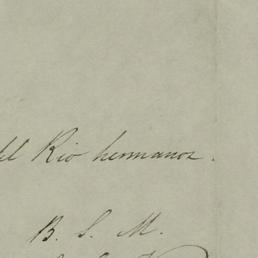 del Rio hermanos.
B. S. M.